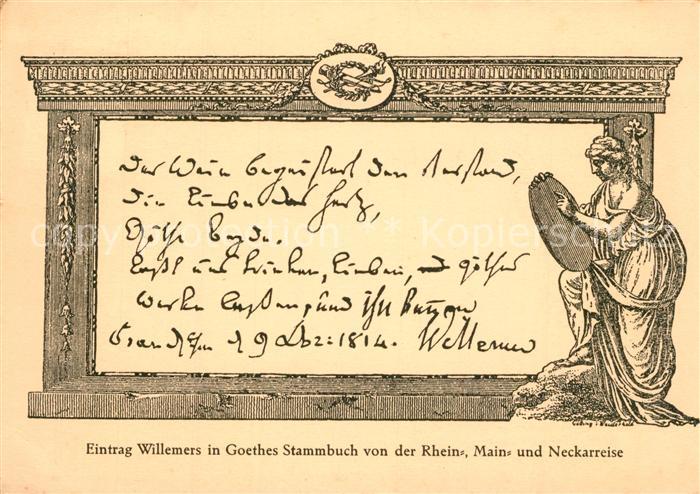 Der Wein begeistert den Verstand,
die Liebe das Hertz,
Göthe beyde.
Laßt uns trinken, lieben, und göthes
Werke lesen und ihn
Frankfurt d 9 8br: 1814. Willemer
Eintrag Willemers in Goethes Stammbuch von der Rhein-, Main- und Neckarreise
copyright protection ** Kopierschutz